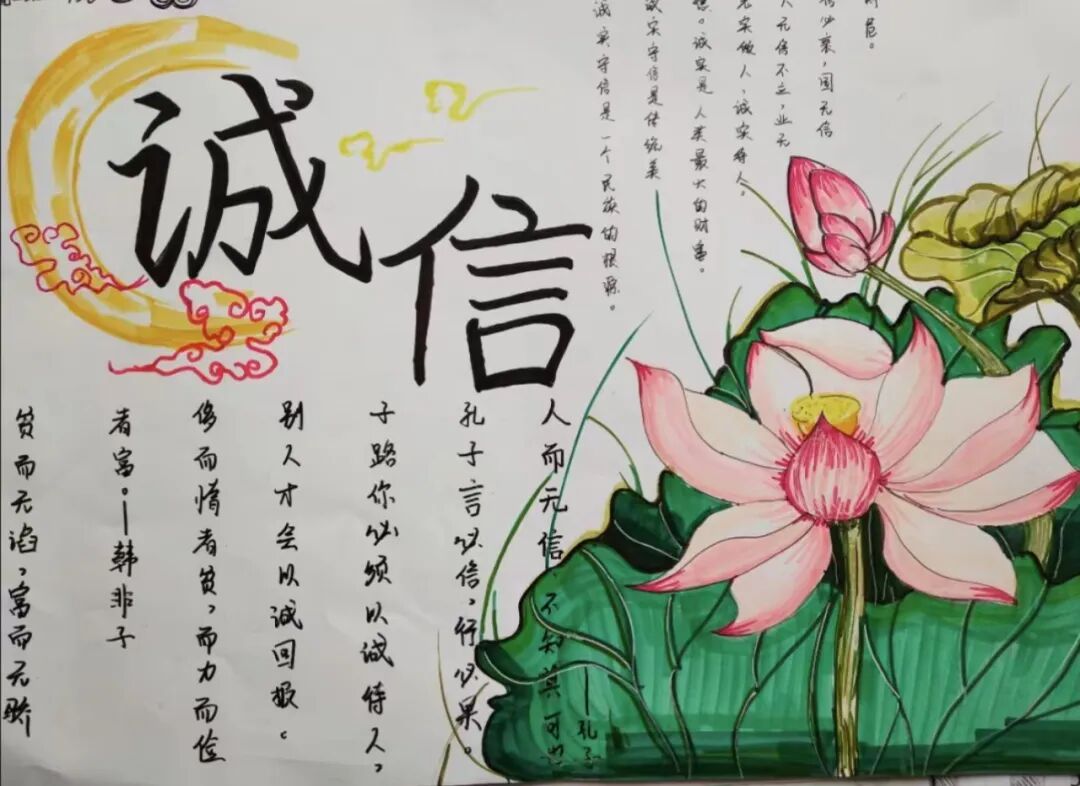 诚信
范。
必衰，国无信
人无信不立，业无
实做人，诚实待人。
诚实是人类最大的财富。
诚实守信是传统美
诚实守信是一个民族的根源。
人而无信，不知其可也
——孔子
孔子言必信，行必果。
子路你必须以诚待人，
别人才会以诚回报。
侈而惰者贫，而力而俭
者富。—韩非子
贫而无谄，富而无骄